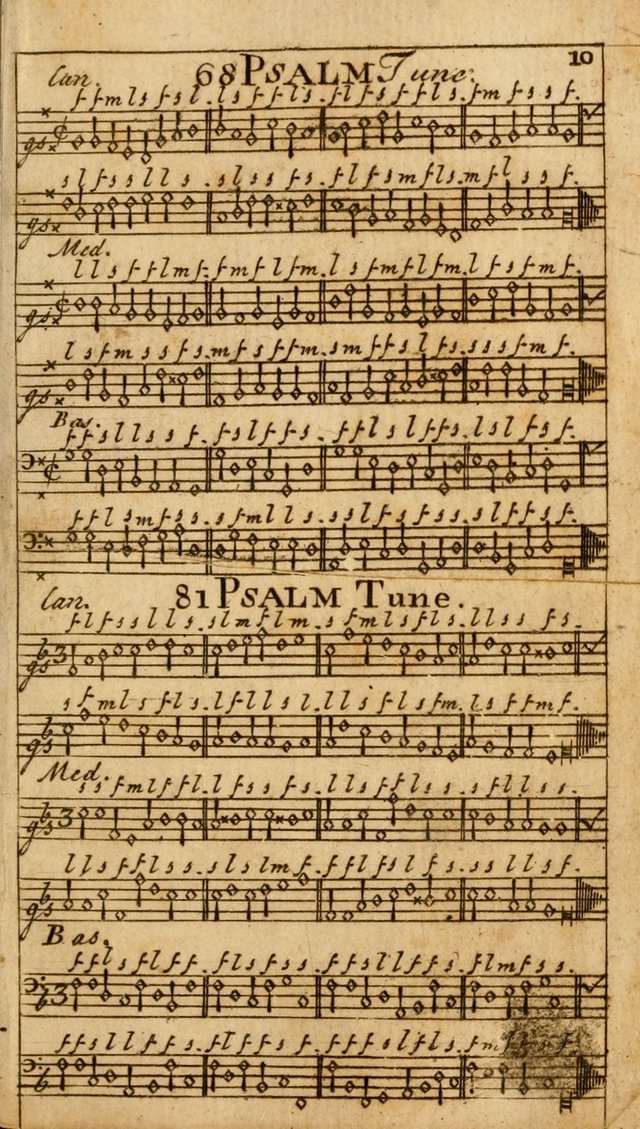 10
Can. 68 PSALM Tune.
f f m l s f s l. l s f f l s. f l f s f f l s. f m f s s f.
s l f s s l l s. s l s s f s. f l f s m f l s. m f l s s f.
Med.
l l s f f l m f. f m f l f m. f l s f m f l m f. l f s f m f.
l s f m s s f s. m f s f f m. s m f f s l f s. s s s f m f.
Bas.
f f s l l s s f. f s l f f s. f f l s l f f s. l s l f s f.
f f l s m f s s. s f m l l s. s s l f s f f s. s l f f s f.
Can. 81 PSALM Tune.
f l f s s l l s. s l m f l m. s f m l s f l s. l l s s f s.
s f m l s f s s. l f l l s l. l l s f l s f m. l s f f m f.
Med.
s s f m l f f l. l f s s f l. l s f f l s f s. s f l l s f.
l l s f f l s s. s l s l m f. f f l s f l f s. s s l l s f.
Bas.
f f l s f l f f. f l s f s s. f f s l l f f s. f l m f s s.
f f s l l f f s. f l f f s s. f f f s l f l s. f